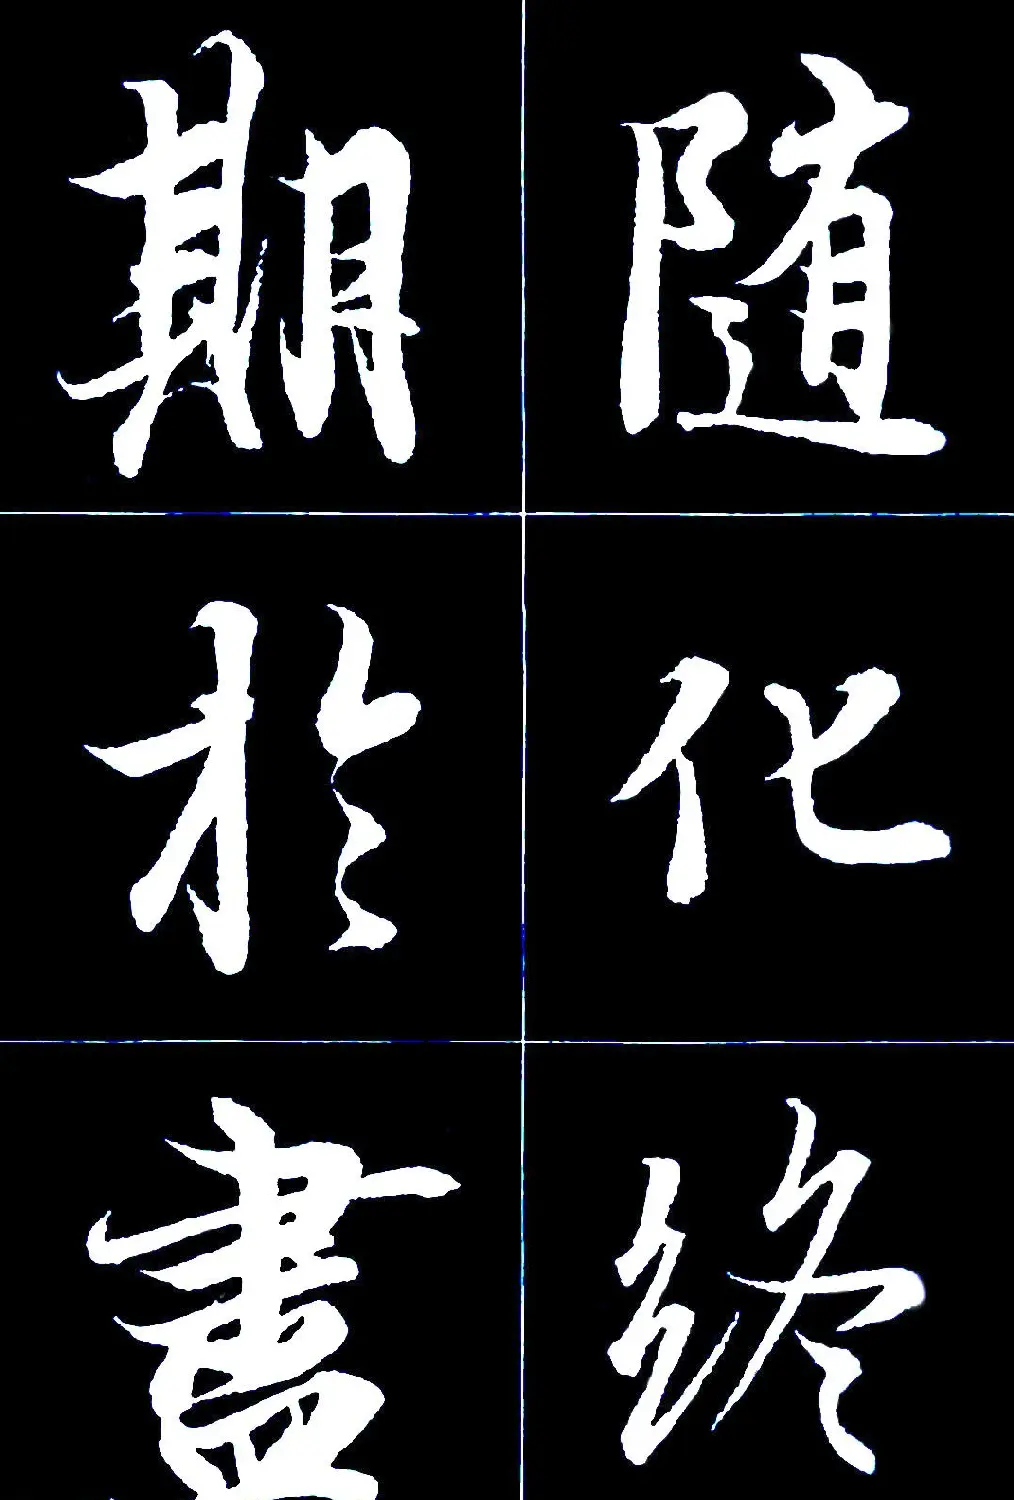 随化終
期於盡